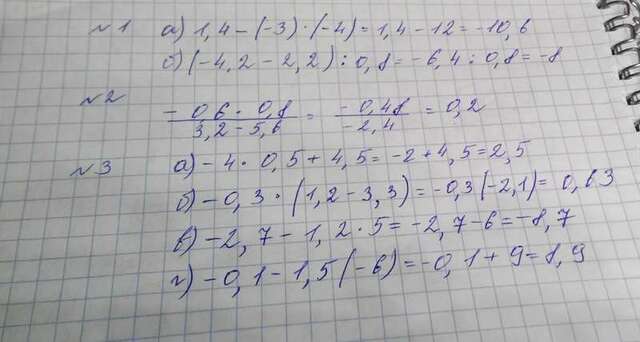 №1 а) 1,4 - (-3) · (-4) = 1,4 - 12 = -10,6
б) (-4,2 - 2,2) : 0,8 = -6,4 : 0,8 = -8
№2 \frac{-0,6 · 0,8}{3,2 - 5,6} = \frac{-0,48}{-2,4} = 0,2
№3 а) -4 · 0,5 + 4,5 = -2 + 4,5 = 2,5
б) -0,3 · (1,2 - 3,3) = -0,3(-2,1) = 0,63
в) -2,7 - 1,2 · 5 = -2,7 - 6 = -8,7
г) -0,1 - 1,5(-6) = -0,1 + 9 = 8,9